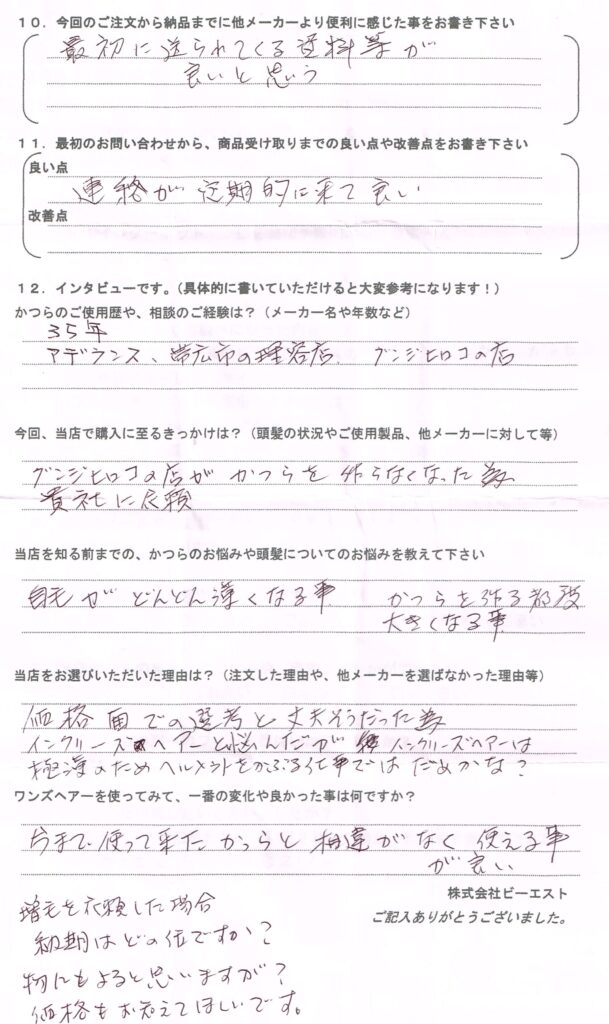 10．今回のご注文から納品までに他メーカーより便利に感じた事をお書き下さい
最初に送られてくる資料等が
良いと思う
11．最初のお問い合わせから、商品受け取りまでの良い点や改善点をお書き下さい
良い点
連絡が定期的に来て良い
改善点
12．インタビューです。（具体的に書いていただけると大変参考になります！）
かつらのご使用歴や、相談のご経験は？（メーカー名や年数など）
35年
アデランス、帯広市の理容店、グンジヒロコの店
今回、当店で購入に至るきっかけは？（頭髪の状況やご使用製品、他メーカーに対して等）
グンジヒロコの店がかつらを作らなくなった為
貴社に依頼
当店を知る前までの、かつらのお悩みや頭髪についてのお悩みを教えて下さい
自毛がどんどん薄くなる事　かつらを作る都度
大きくなる事
当店をお選びいただいた理由は？（注文した理由や、他メーカーを選ばなかった理由等）
価格面での選考と丈夫そうだった為
インクリーズヘアーと悩んだが インクリーズヘアーは
極薄のためヘルメットをかぶる仕事ではだめかな？
ワンズヘアーを使ってみて、一番の変化や良かった事は何ですか？
今まで使って来たかつらと相違がなく使える事
が良い
株式会社ビーエスト
ご記入ありがとうございました。
増毛を依頼した場合
納期はどの位ですか？
物にもよると思いますが？
価格もお知えてほしいです。